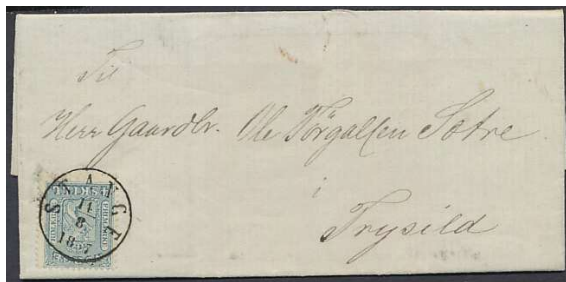 Til
Herr Gaardbr. Ole Törgalsen Sætre
i
Trysild
STANGE
11
8
1867
4 SKILL